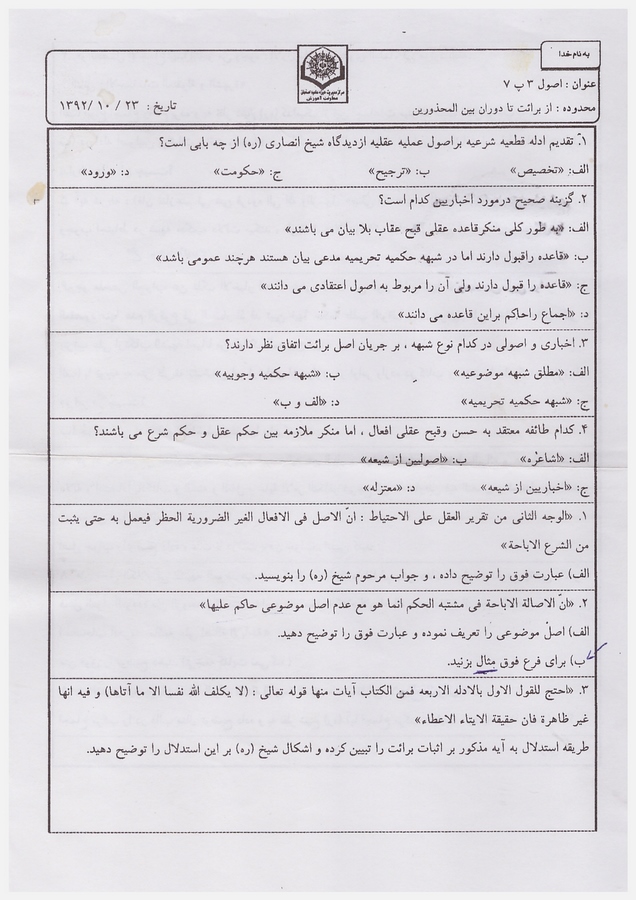 به نام خدا
مرکز مدیریت حوزه علمیه اصفهان
معاونت آموزش
عنوان : اصول ۳ ب ۷
محدوده : از برائت تا دوران بین المحذورین
تاریخ : ۲۳ / ۱۰ /۱۳۹۲
۱. تقدیم ادله قطعیه شرعیه براصول عملیه عقلیه ازدیدگاه شیخ انصاری (ره) از چه بابی است؟
الف: «تخصیص» ب: «ترجیح» ج: «حکومت» د: «ورود»
۲. گزینه صحیح درمورد اخباریین کدام است؟
الف: «به طور کلی منکرقاعده عقلی قبح عقاب بلا بیان می باشند»
ب: «قاعده راقبول دارند اما در شبهه حکمیه تحریمیه مدعی بیان هستند هرچند عمومی باشد»
ج: «قاعده را قبول دارند ولی آن را مربوط به اصول اعتقادی می دانند»
د: «اجماع راحاکم براین قاعده می دانند»
۳. اخباری و اصولی در کدام نوع شبهه ، بر جریان اصل برائت اتفاق نظر دارند؟
الف: «مطلق شبهه موضوعیه» ب: «شبهه حکمیه وجوبیه»
ج: «شبهه حکمیه تحریمیه» د: «الف و ب»
۴. کدام طائفه معتقد به حسن وقبح عقلی افعال ، اما منکر ملازمه بین حکم عقل و حکم شرع می باشند؟
الف: «اشاعره» ب: «اصولیین از شیعه»
ج: «اخباریین از شیعه» د: «معتزله»
۱. «الوجه الثانی من تقریر العقل علی الاحتیاط : انّ الاصل فی الافعال الغیر الضروریة الحظر فیعمل به حتی یثبت
من الشرع الاباحة»
الف) عبارت فوق را توضیح داده ، و جواب مرحوم شیخ (ره) را بنویسید.
۲. «انّ الاصالة الاباحة فی مشتبه الحکم انما هو مع عدم اصل موضوعی حاکم علیها»
الف) اصل موضوعی را تعریف نموده و عبارت فوق را توضیح دهید.
ب) برای فرع فوق مثال بزنید.
۳. «احتج للقول الاول بالادله الاربعه فمن الکتاب آیات منها قوله تعالی : (لا یکلف الله نفسا الا ما آتاها) و فیه انها
غیر ظاهرة فان حقیقة الایتاء الاعطاء»
طریقه استدلال به آیه مذکور بر اثبات برائت را تبیین کرده و اشکال شیخ (ره) بر این استدلال را توضیح دهید.